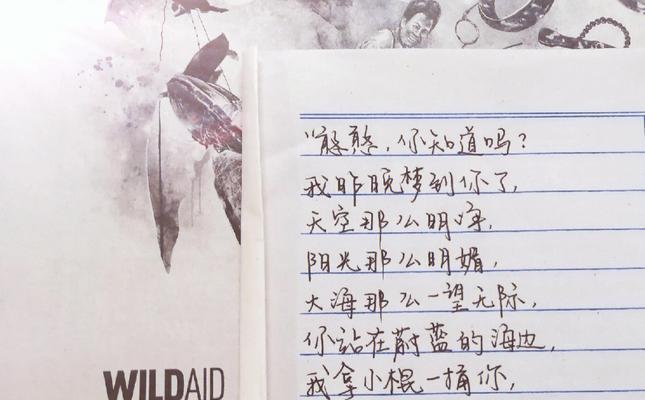 "解憨,你知道吗?
我昨晚梦到你了,
天空那么明净,
阳光那么明媚,
大海那么一望无际,
你站在蔚蓝的海边,
我拿小棍一捅你,
WILDAID